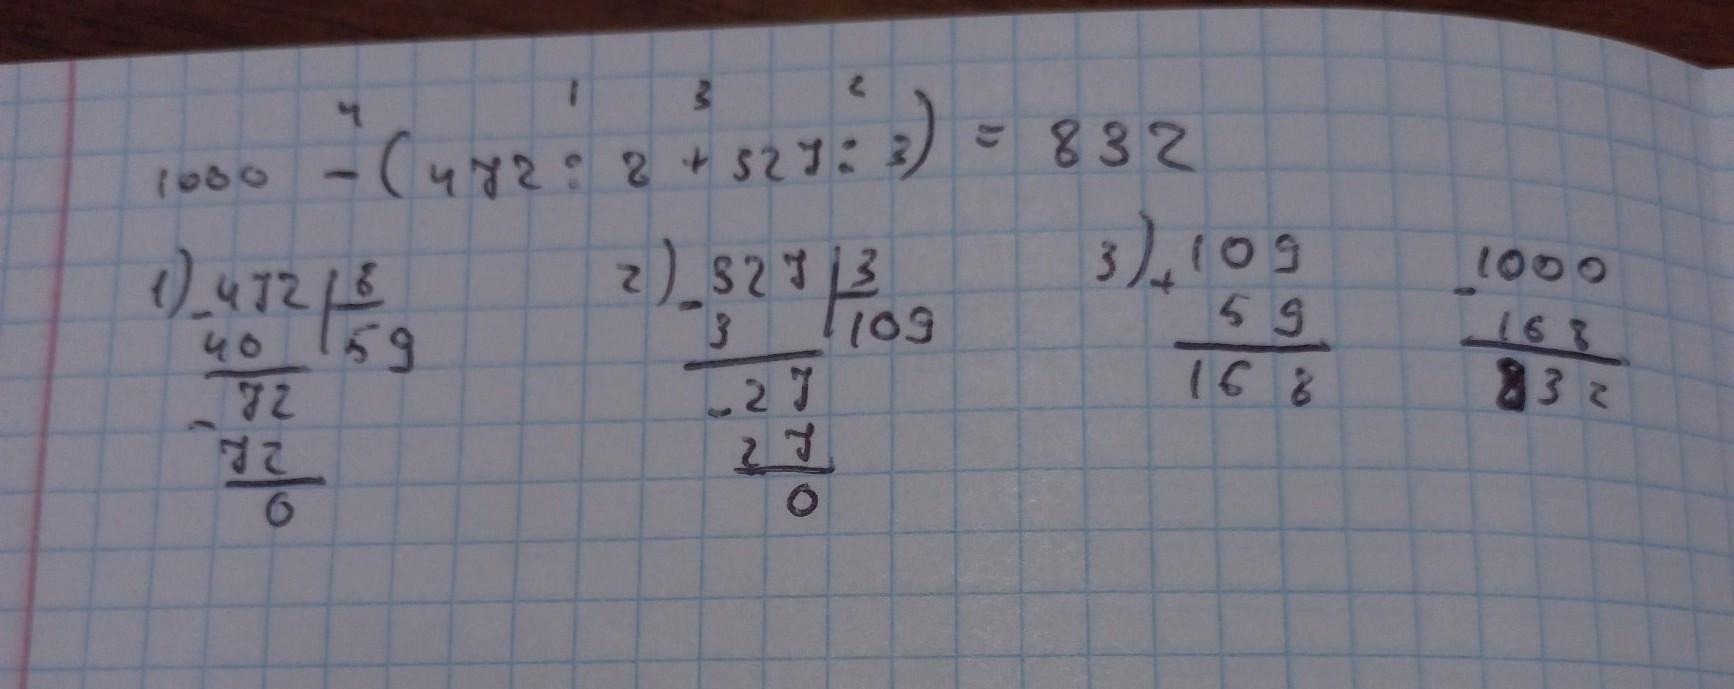 4 1 3 2
1000 - (472 : 8 + 327 : 3) = 832
1) - 472 | 8
40 | 59
- 72
72
0
2) - 327 | 3
3 | 109
- 27
27
0
3) + 109
59
168
- 1000
168
832